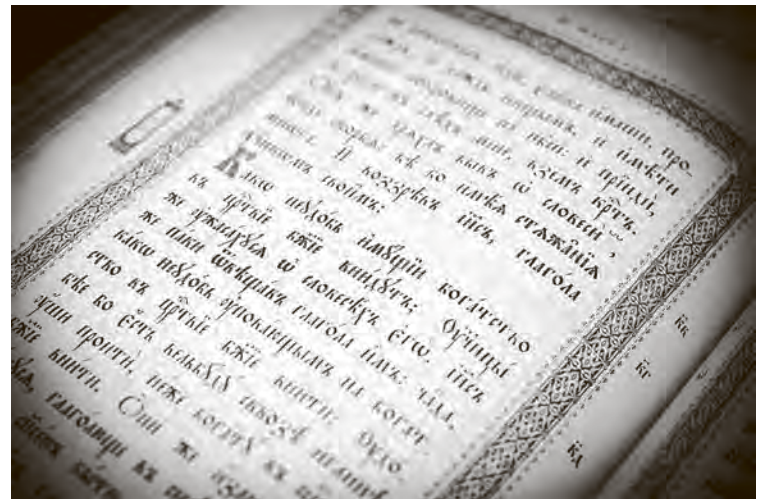 є҆ли̑ка и҆́маши, про-
да́ждь, и҆ да́ждь ни́щымъ, и҆ и҆мѣ́ти
сокро́вище на нб҃сѝ: и҆ прїидѝ,
ходѝ въ слѣ́дъ менє̀, взе́мъ крⷭ҇тъ.
Ѻ҆́нъ же дрѧ́хлъ бы́въ ѡ҆ словесѝ,
скорбѧ̀: бѣ́ бо и҆мѣ́ѧ стѧжа̑нїѧ
мнѡ́га. И҆ воззрѣ́въ і҆и҃съ, глаго́ла
ᲂу҆чн҃кѡ́мъ свои̑мъ:
Ка́кѡ неꙋдо́бь и҆мꙋ́щїи бога́тство
въ црⷭ҇твїе бж҃їе вни́дꙋтъ; Оу҆ч҃нцы́
же ᲂу҆жаса́хꙋсѧ ѡ҆ словесѣ́хъ є҆гѡ̀. і҆и҃съ
же па́ки ѿвѣща́въ глаго́ла и҆̀мъ: ча̑да,
ка́кѡ неꙋдо́бь ᲂу҆пова́ющымъ на бога́т-
ство въ црⷭ҇твїе бж҃їе вни́ти. Оу҆до́-
бѣе бо є҆́сть вельбꙋ́дꙋ сквозѣ̀ и҆глинѣ̑
ᲂу҆́шы проитѝ, не́же бога́тꙋ въ
бж҃їе вни́ти. Ѻ҆ни́ же
глаго́люще къ
бы́ти
к҃в
к҃г
к҃д